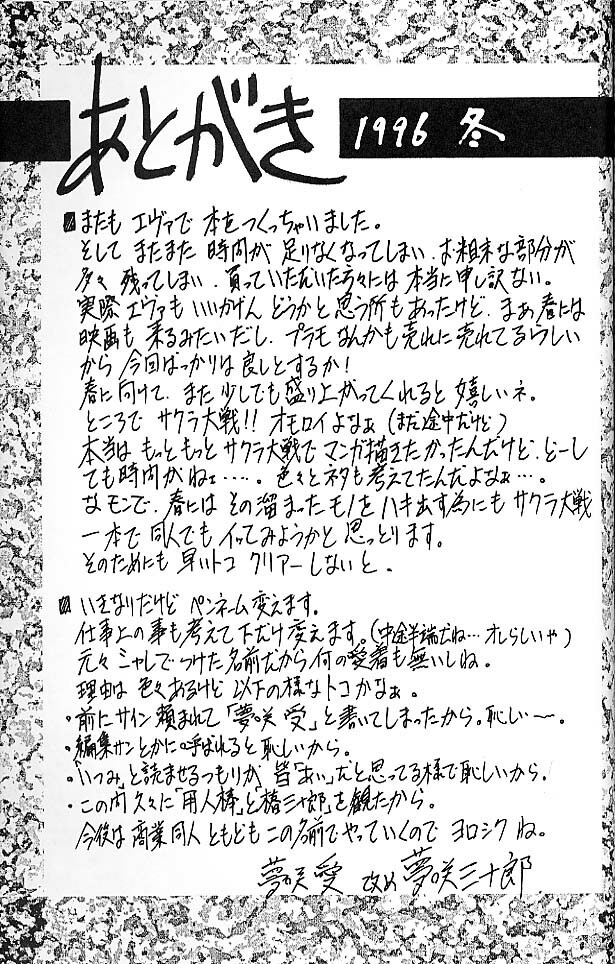 あとがき
1996 冬
またも エヴァで 本をつくっちゃいました。
そして またまた 時間が 足りなくなってしまい、お粗末な部分が
多々 残ってしまい、買っていただいた方々には 本当に申し訳ない。
実際 エヴァも いいかげん どうかと 思う所もあったけど、まぁ 春には
映画も 来るみたいだし、プラモなんかも売れに売れてるらしい
から 今回ばっかりは 良しとするか!
春に向けて、また 少しでも 盛り上がってくれると 嬉しいネ。
ところで サクラ大戦!! オモロイよなぁ (まだ途中だけど)
本当は もっともっと サクラ大戦で マンガ描きたかったんだけど、どーし
ても時間がねェ・・・・。色々とネタも考えてたんだよなぁ・・・。
なモンで、春には その溜まったモノを ハキ出す為にも サクラ大戦
一本で 同人でも イってみようかと 思っとります。
そのためにも 早いトコ クリアーしないと。
いきなりだけど ペンネーム変えます。
仕事上の事も考えて 下だけ変えます。(中途半端だね… オレらしいや)
元々 シャレで つけた 名前だから 何の愛着も 無いしね。
理由は 色々あるけど 以下の様な トコかなぁ。
・前にサイン頼まれて「夢咲 受」と書いてしまったから。恥しい〜。
・編集サンとかに呼ばれると 恥しいから。
・「いつみ」と読ませるつもりが 皆「あい」だと思ってる様で恥しいから。
・この内 久々に「用人棒」と「椿三十郎」を観たから。
今後は 商業 同人 ともども この名前で やっていくので ヨロシク ね。
夢咲愛 改め 夢咲三十郎